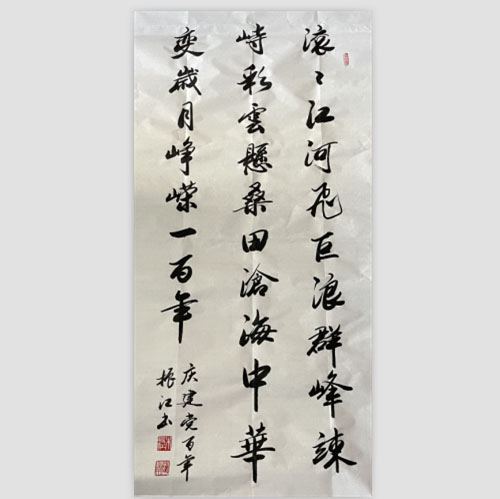 滚〻江河飛巨浪群峰竦
峙彩雲懸桑田滄海中華
变歲月峥嵘一百年
庆建党百年
振江书